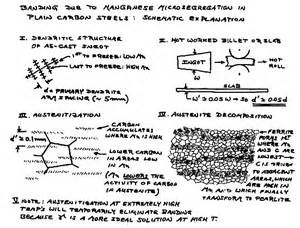 BANDING DUE TO MANGANESE MICROSEGREGATION IN
PLAIN CARBON STEELS: SCHEMATIC EXPLANATION
I. DENDRITIC STRUCTURE
OF AS-CAST INGOT
1ST TO FREEZE: LOW Mn
LAST TO FREEZE: HIGH Mn
d = PRIMARY DENDRITE
ARM SPACING (~ 5mm)
II. HOT WORKED BILLET OR SLAB
INGOT
HOT
ROLL
W
SLAB
W' = 0.05W → SO d' = 0.05d
III. AUSTENITIZATION
CARBON
ACCUMULATES
WHERE Mn IS HIGH
LOWER CARBON
IN AREAS LOW
IN Mn
(Mn LOWERS THE
ACTIVITY OF CARBON
IN AUSTENITE)
IV. AUSTENITE DECOMPOSITION
FERRITE
FORMS 1ST
WHERE Mn
AND C ARE
LOWEST
C IS
TO ADJACENT
AREAS, WHICH
ARE RICH IN
Mn AND WHICH FINALLY
TRANSFORM TO PEARLITE
V NOTE: AUSTENITIZATION AT EXTREMELY HIGH
TEMPS WILL TEMPORARILY ELIMINATE BANDING
BECAUSE γ IS A MORE IDEAL SOLUTION AT HIGH T.